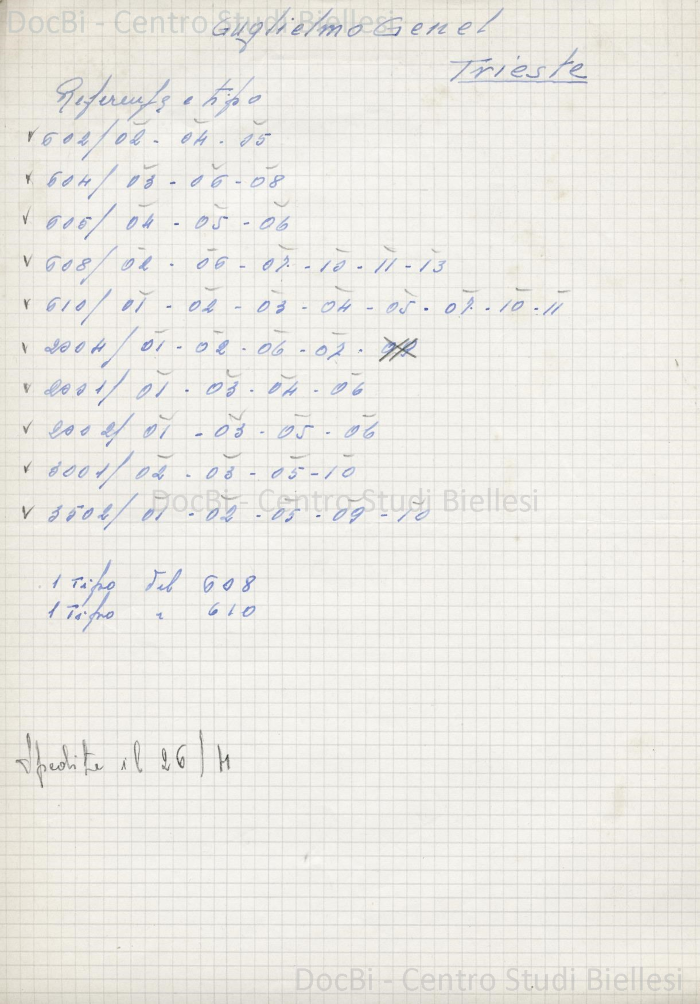 DocBi - Centro Studi Biellesi
Guglielmo Genel
Trieste
Referenze e tipo
602/ 02 - 04 - 05
604/ 03 - 06 - 08
605/ 04 - 05 - 06
608/ 02 - 06 - 07 - 10 - 11 - 13
610/ 01 - 02 - 03 - 04 - 05 - 07 - 10 - 11
2004/ 01 - 02 - 06 - 07 -
2001/ 01 - 03 - 04 - 06
2002/ 01 - 03 - 05 - 06
3001/ 02 - 03 - 05 - 10
DocBi - Centro Studi Biellesi
3502/ 01 - 02 - 05 - 09 - 10
1 Tipo del 608
1 Tipo " 610
Spedite il 26/4
DocBi - Centro Studi Biellesi